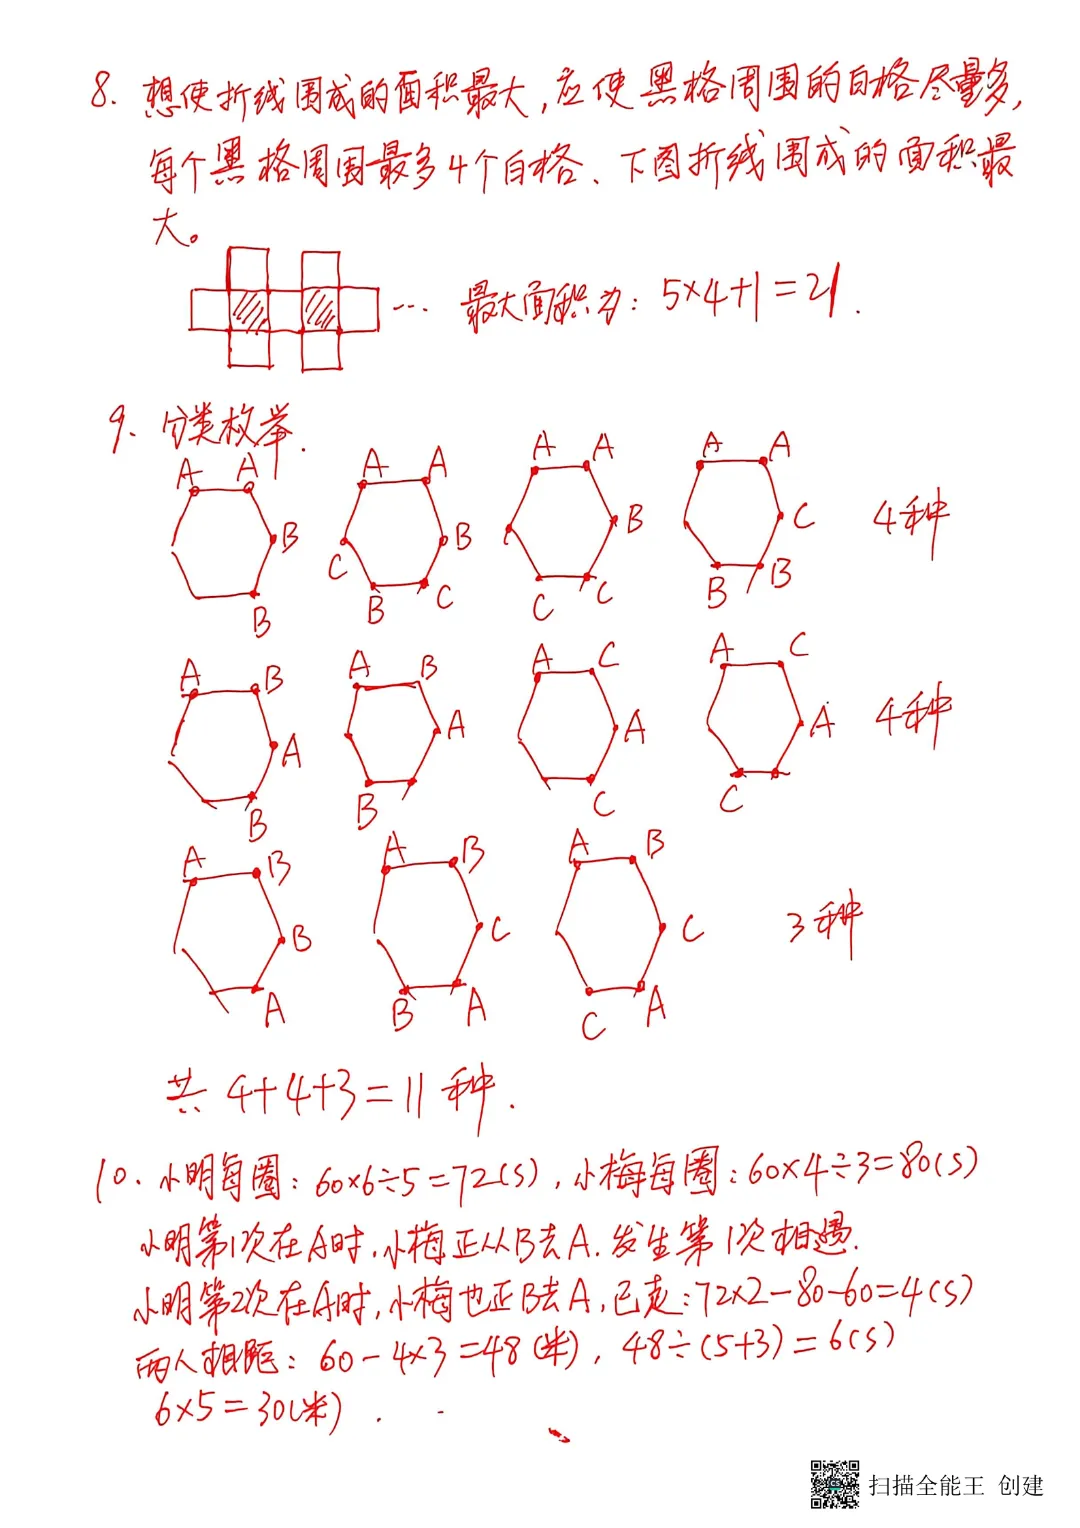 8. 想使折线围成的面积最大,应使黑格周围的白格尽量多,
每个黑格周围最多4个白格、下图折线围成的面积最
大。
... 最大面积为: 5×4+1=21.
9. 分类枚举.
A A B B
A A B C B C
A A B C C
A A C B B
4种
A B A B
A B A B
A C A C
A C A C
4种
A B B A
A B C A B
A B C A C
3种
共 4+4+3=11 种.
10. 小明每圈: 60×6÷5=72(s), 小梅每圈: 60×4÷3=80(s)
小明第1次在A时,小梅正从B去A.发生第1次相遇.
小明第2次在A时,小梅也正B去A,已走:72×2-80-60=4(s)
两人相距: 60-4×3=48(米), 48÷(5+3)=6(s)
6×5=30(米).
扫描全能王 创建